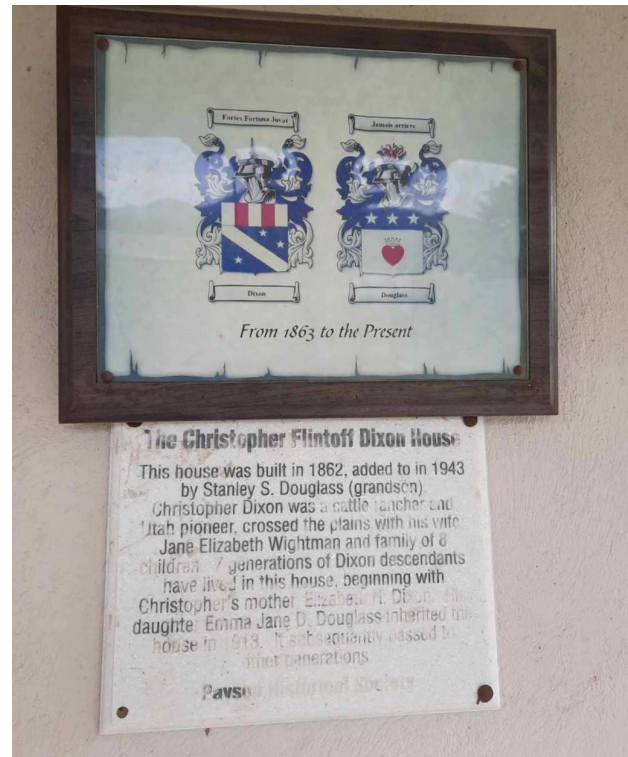 Fortes Fortuna Juvat
Jamais arriere
Dixon
Douglass
From 1863 to the Present
The Christopher Flintoff Dixon House
This house was built in 1862, added to in 1943
by Stanley S. Douglass (grandson)
Christopher Dixon was a cattle rancher and
Utah pioneer, crossed the plains with his wife
Jane Elizabeth Wightman and family of 8
children. 7 generations of Dixon descendants
have lived in this house, beginning with
Christopher's mother Elizabeth H. Dixon.
daughter Emma Jane D. Douglass inherited this
house in 1913. It subsequently passed to
other generations
Payson Historical Society